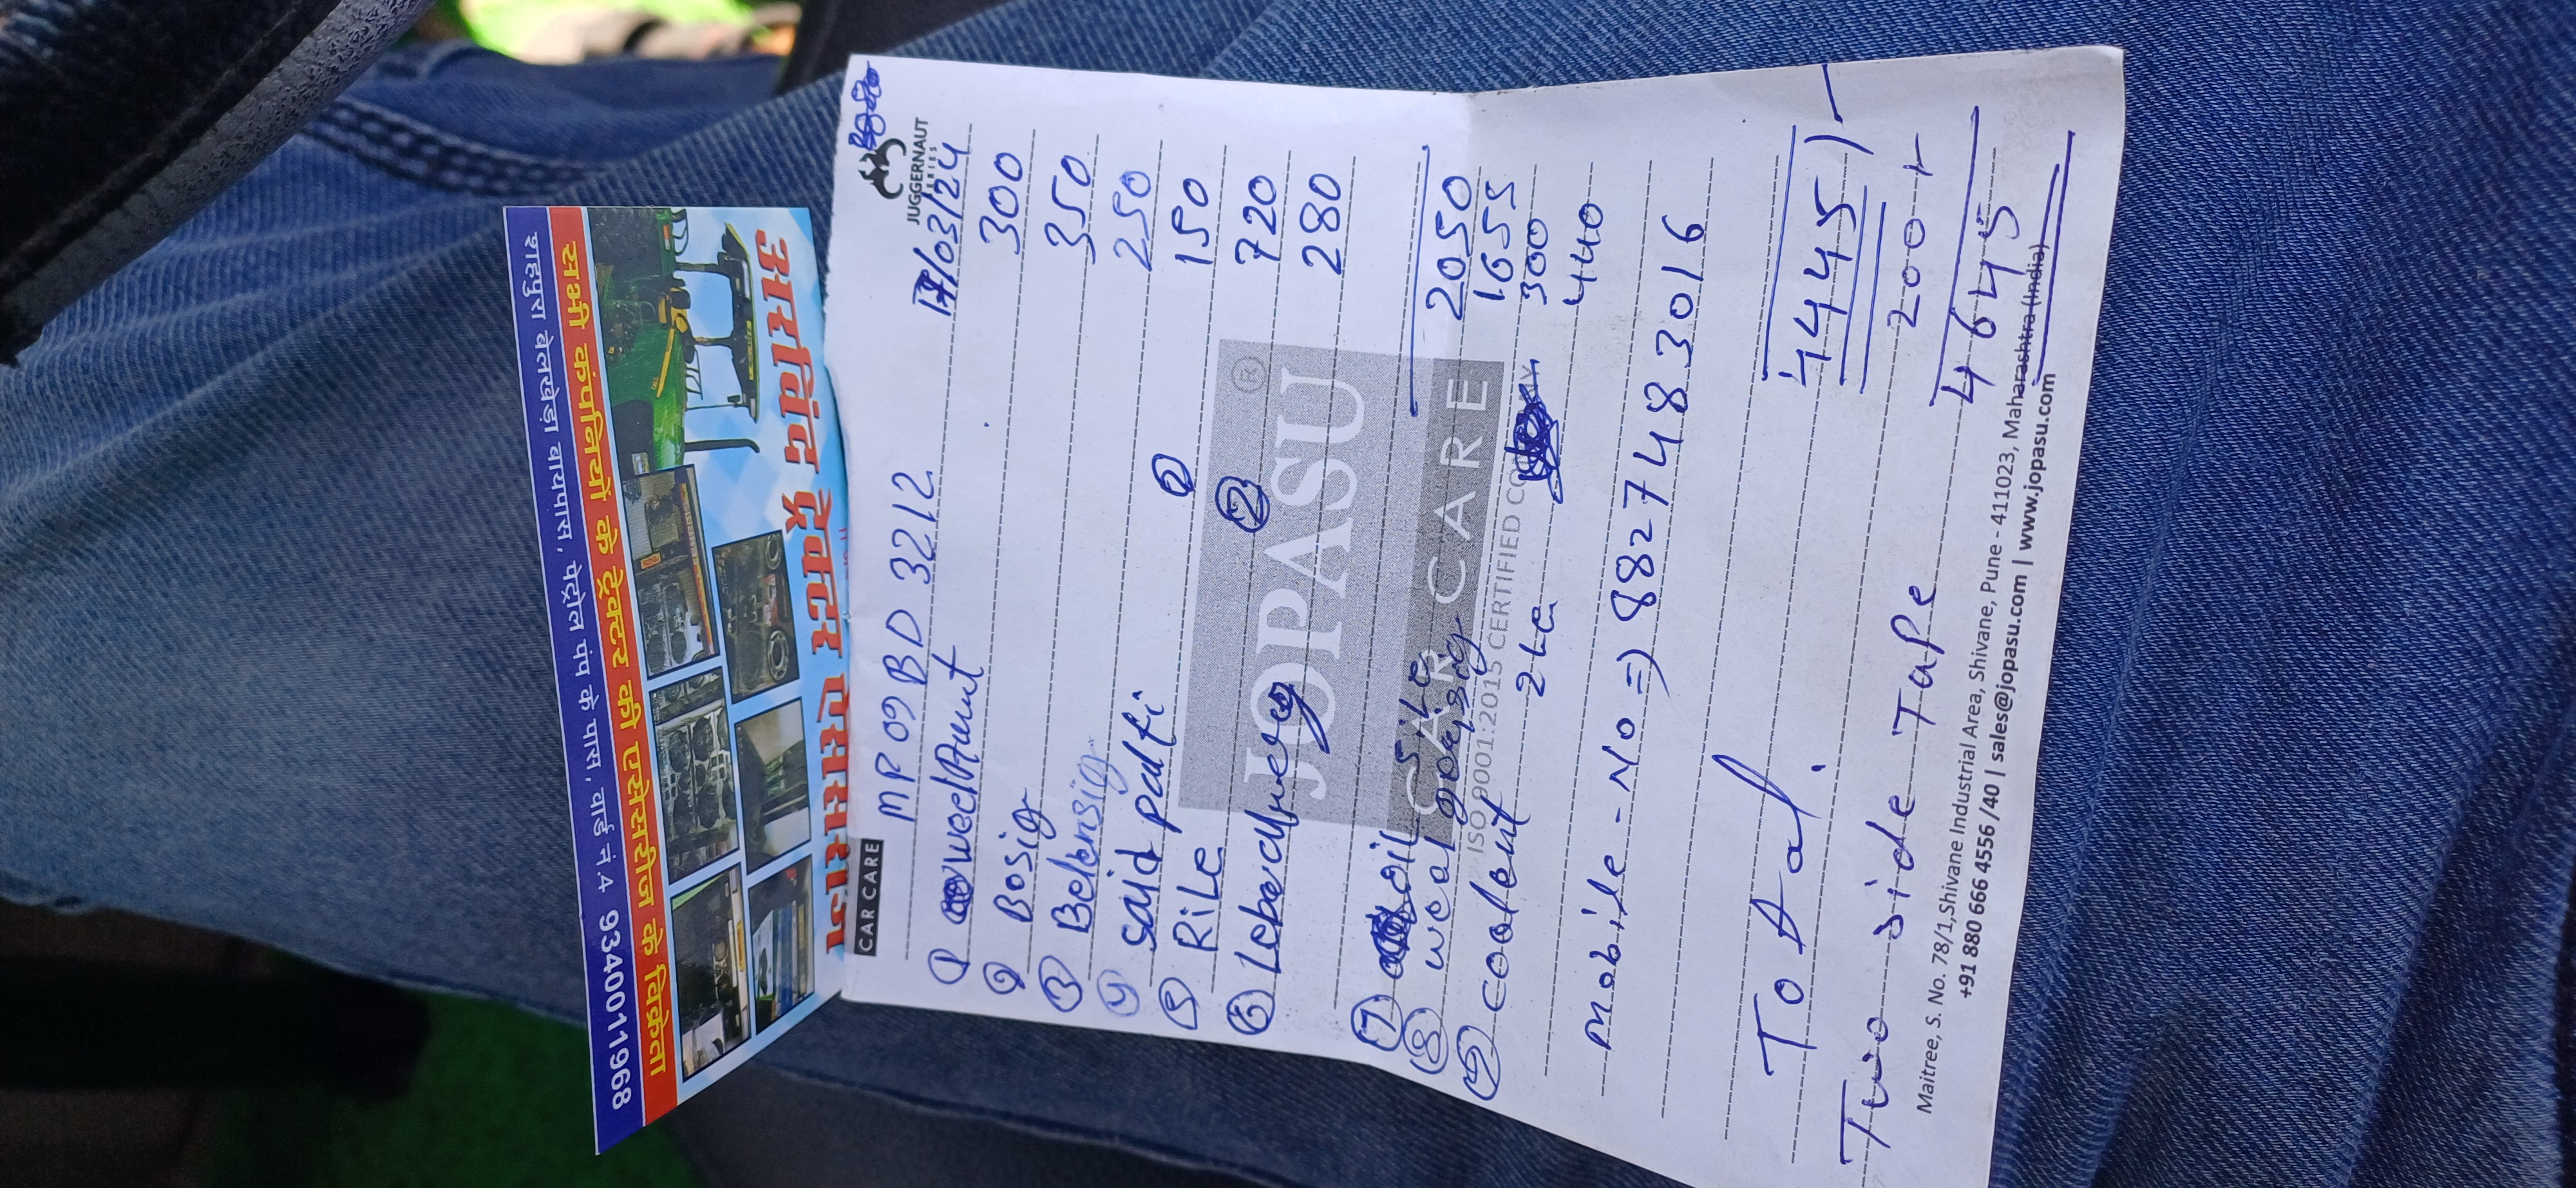 शाहपुरा बेलखेड़ा बायपास, पेट्रोल पंप के पास, वार्ड नं.4 9340011968
सभी कंपनियों के ट्रेक्टर की एसेसरीज के विक्रेता
अरविंद ट्रेक्टर
CAR CARE
JUGGERNAUT
SERIES
MP 09 BD 3212 /03/24
1 weel 300
2 Bosig 350
3 Belensig 250
4 said patti 150
5 Rile 2 720
6 2 280
2050
7 oil 5 Lte 1655
8 weel 300
9 coolent 2 Le 440
JOPASU ®
CAR CARE
ISO 9001:2015 CERTIFIED
mobile - NO => 8827483016
Total. 4445/-
Two side Tape 200+
4645
Maitree, S. No. 78/1,Shivane Industrial Area, Shivane, Pune - 411023, Maharashtra (India)
+91 880 666 4556 /40 | sales@jopasu.com | www.jopasu.com